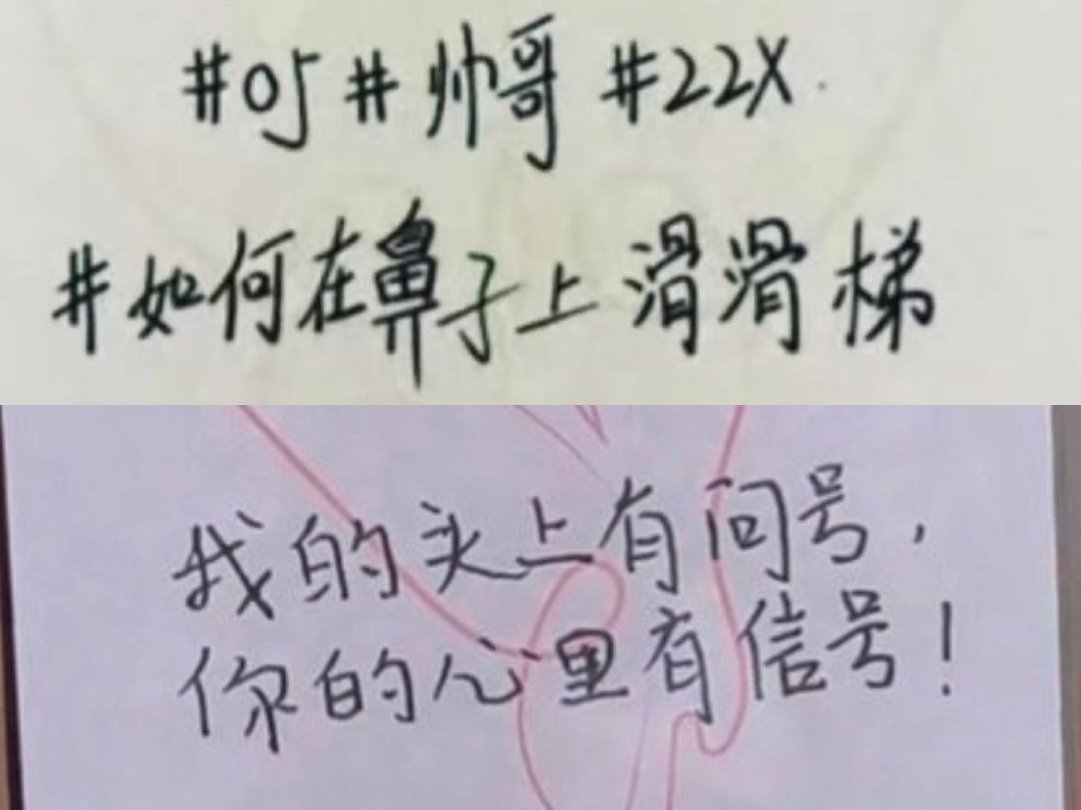 #05#帅哥 #22X.
#如何在鼻子上滑滑梯
我的头上有问号，
你的心里有信号！